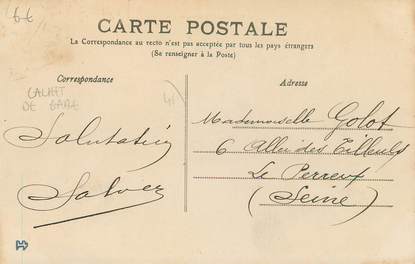 6€
CARTE POSTALE
La Correspondance au recto n'est pas acceptée par tous les pays étrangers
(Se renseigner à la Poste)
Correspondance
Adresse
CACHET
DE GARE
Mademoiselle Golot
6 Allée des Tilleuls
Le Perreux
(Seine)
Salutation